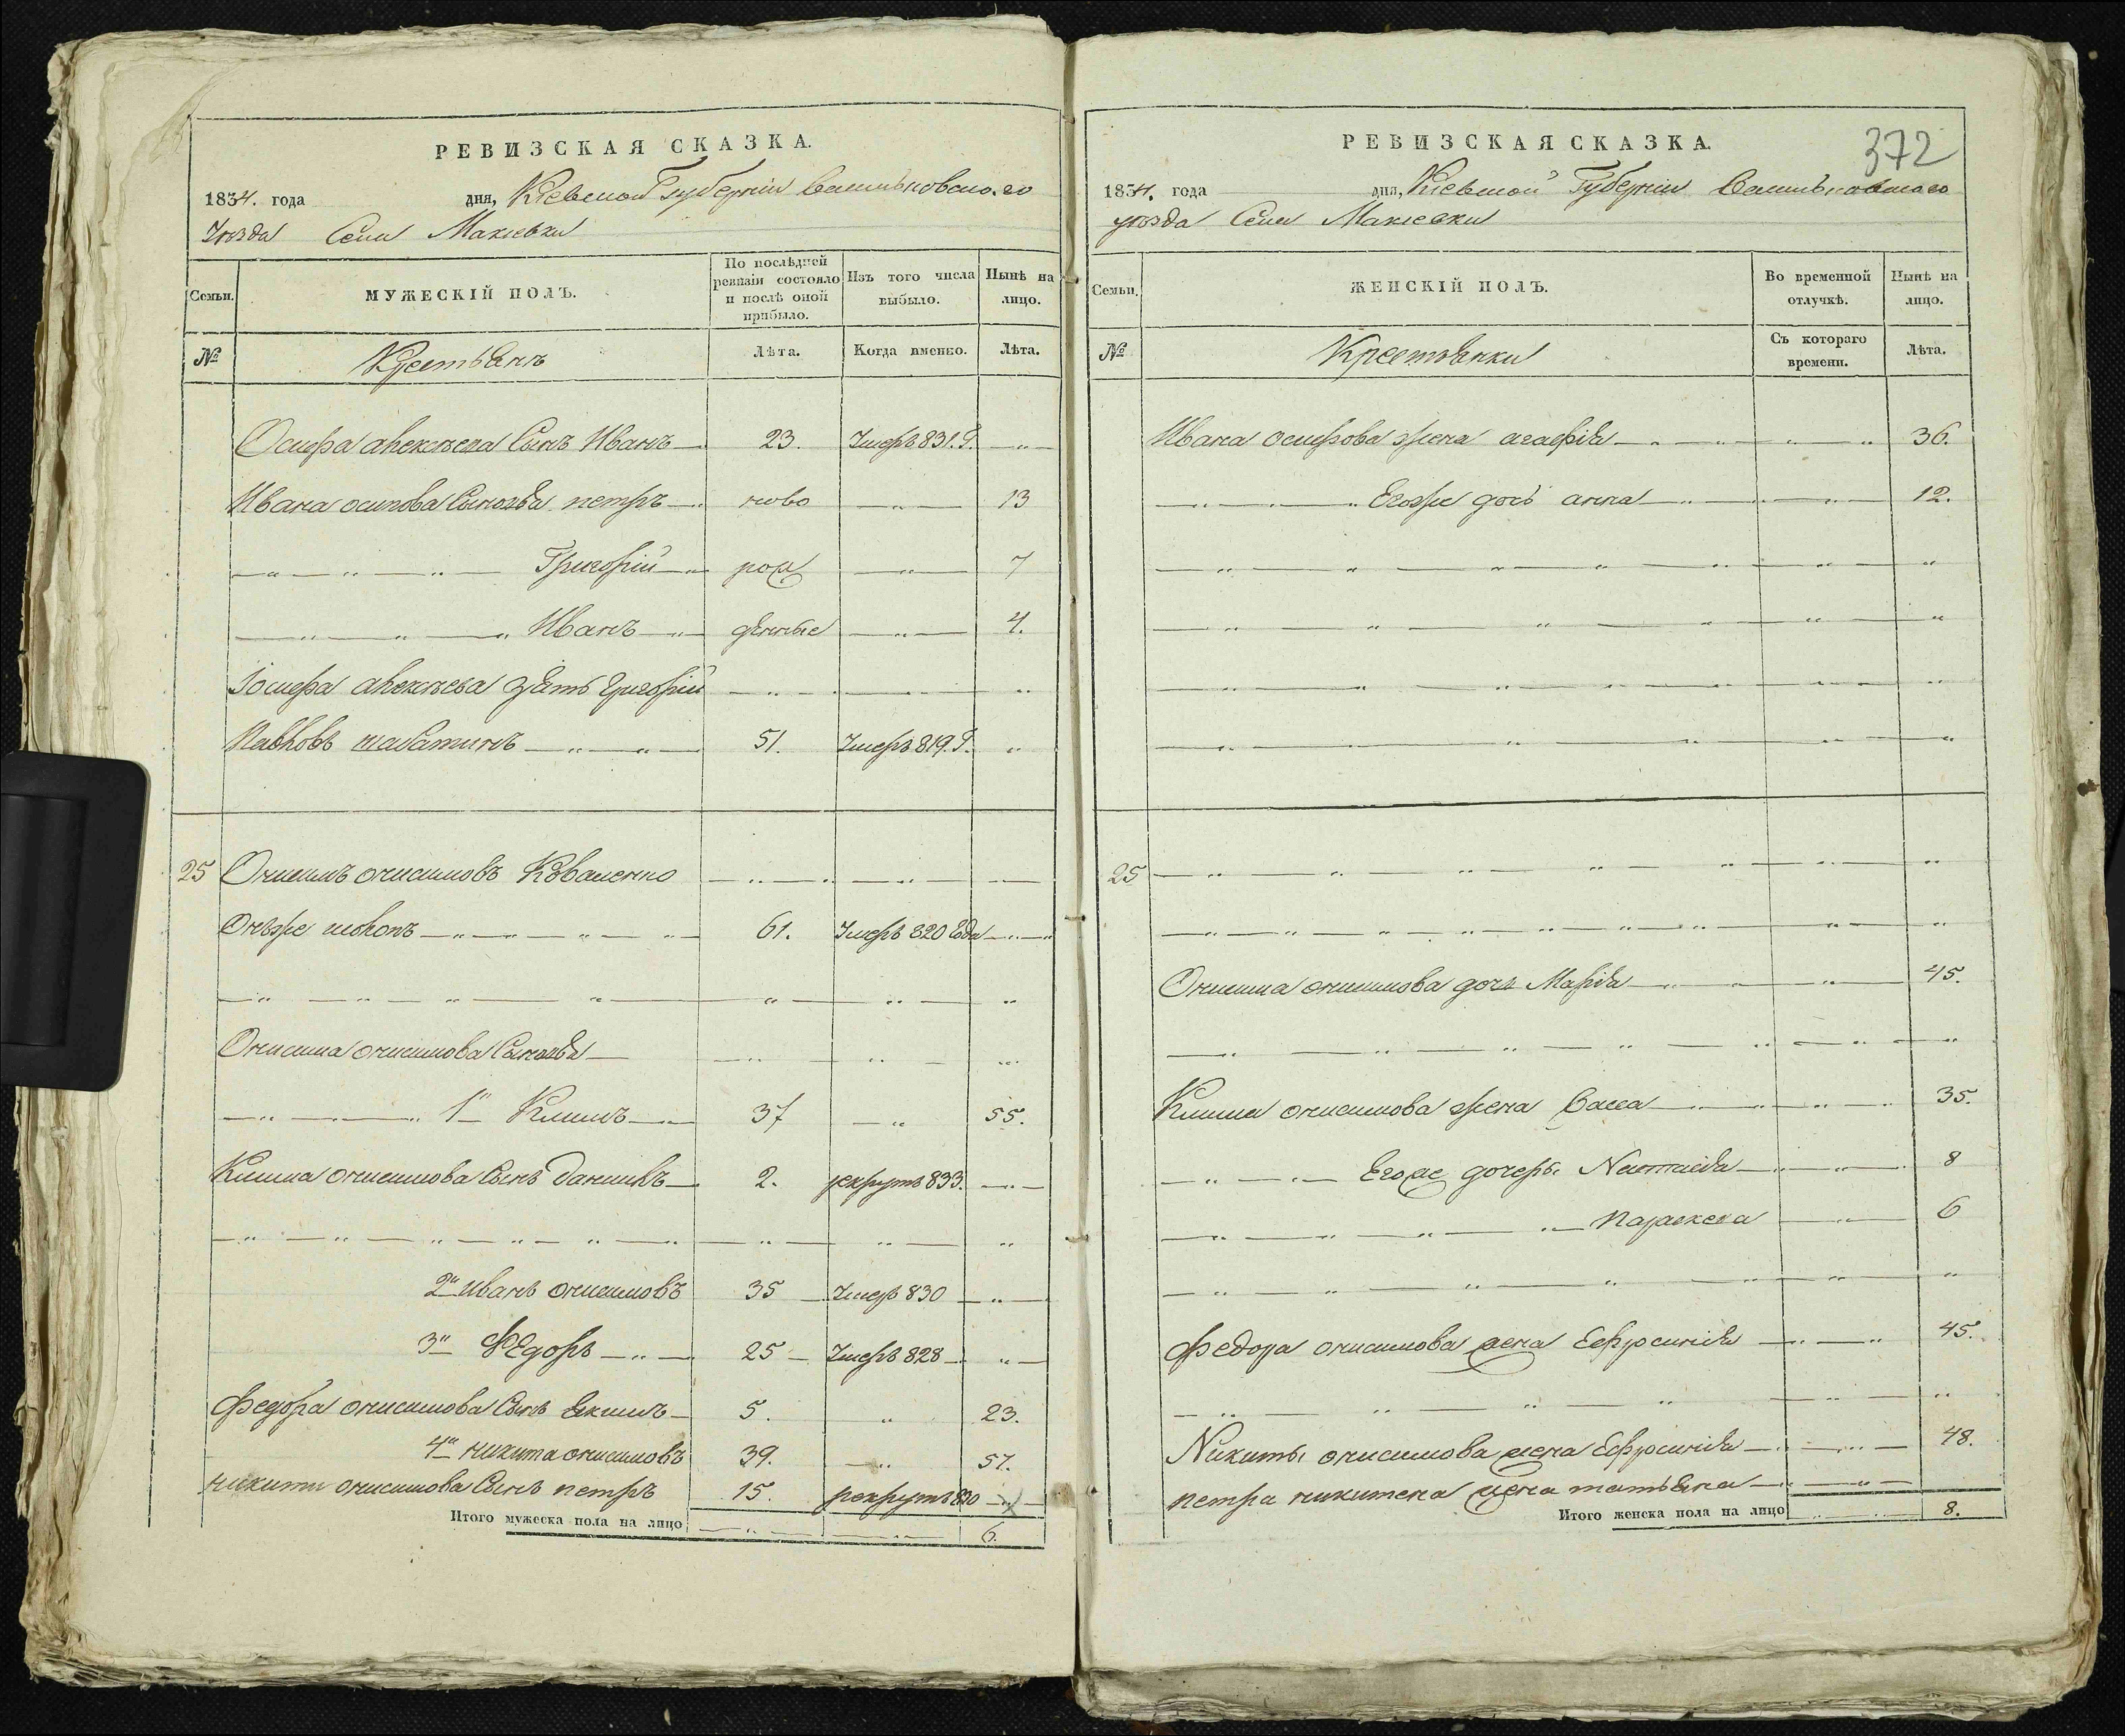 РЕВИЗСКАЯ СКАЗКА.
1834. года дня, Кіевской Губерніи Васильковскаго
Уѣзда Села Макіевки
Семьи. МУЖЕСКІЙ ПОЛЪ. По послѣдней ревизіи состояло и послѣ оной прибыло. Изъ того числа выбыло. Нынѣ на лицо.
№ Крестьянъ Лѣта. Когда именно. Лѣта.
Осифа алексѣева Сынъ Иванъ 23. Умеръ 831. Г.
Ивана осипова Сыновья петръ ново 13
Григорій рож 7
Иванъ денные 4.
Іосифа алексѣева зять григорій
Павловъ 51. Умеръ 819. Г.
25 Онисимъ онисимовъ Коваленко
Онъже 61. Умеръ 820 Года
Онисима онисимова Сыновья
1й Климъ 37 55.
Клима онисимова Сынъ данилъ 2. рекрутъ 833.
2й иванъ онисимовъ 35 Умеръ 830
3й Ѳедоръ 25 Умеръ 828
федора онисимова Сынъ якимъ 5. 23.
4й никита онисимовъ 39. 57.
никиты онисимова Сынъ петръ 15. рекрутъ
Итого мужеска пола на лицо 6.
372
РЕВИЗСКАЯ СКАЗКА.
1834. года дня, Кіевской Губерніи Васильковскаго
уѣзда Села Макіевки
Семьи. ЖЕНСКІЙ ПОЛЪ. Во временной отлучкѣ. Нынѣ на лицо.
№ Крестьянки Съ котораго времени. Лѣта.
Ивана осифова жена агафія 36.
Егоже дочь анна 12.
25
Онисима онисимова дочь Марія 45.
Клима онисимова жена Васса 35.
Егоже дочеры Настасія 8
Параскева 6
федора онисимова жена Ефросинія 45.
Никиты онисимова жена Ефросинія 48.
петра никитена жена татьяна
Итого женска пола на лицо 8.